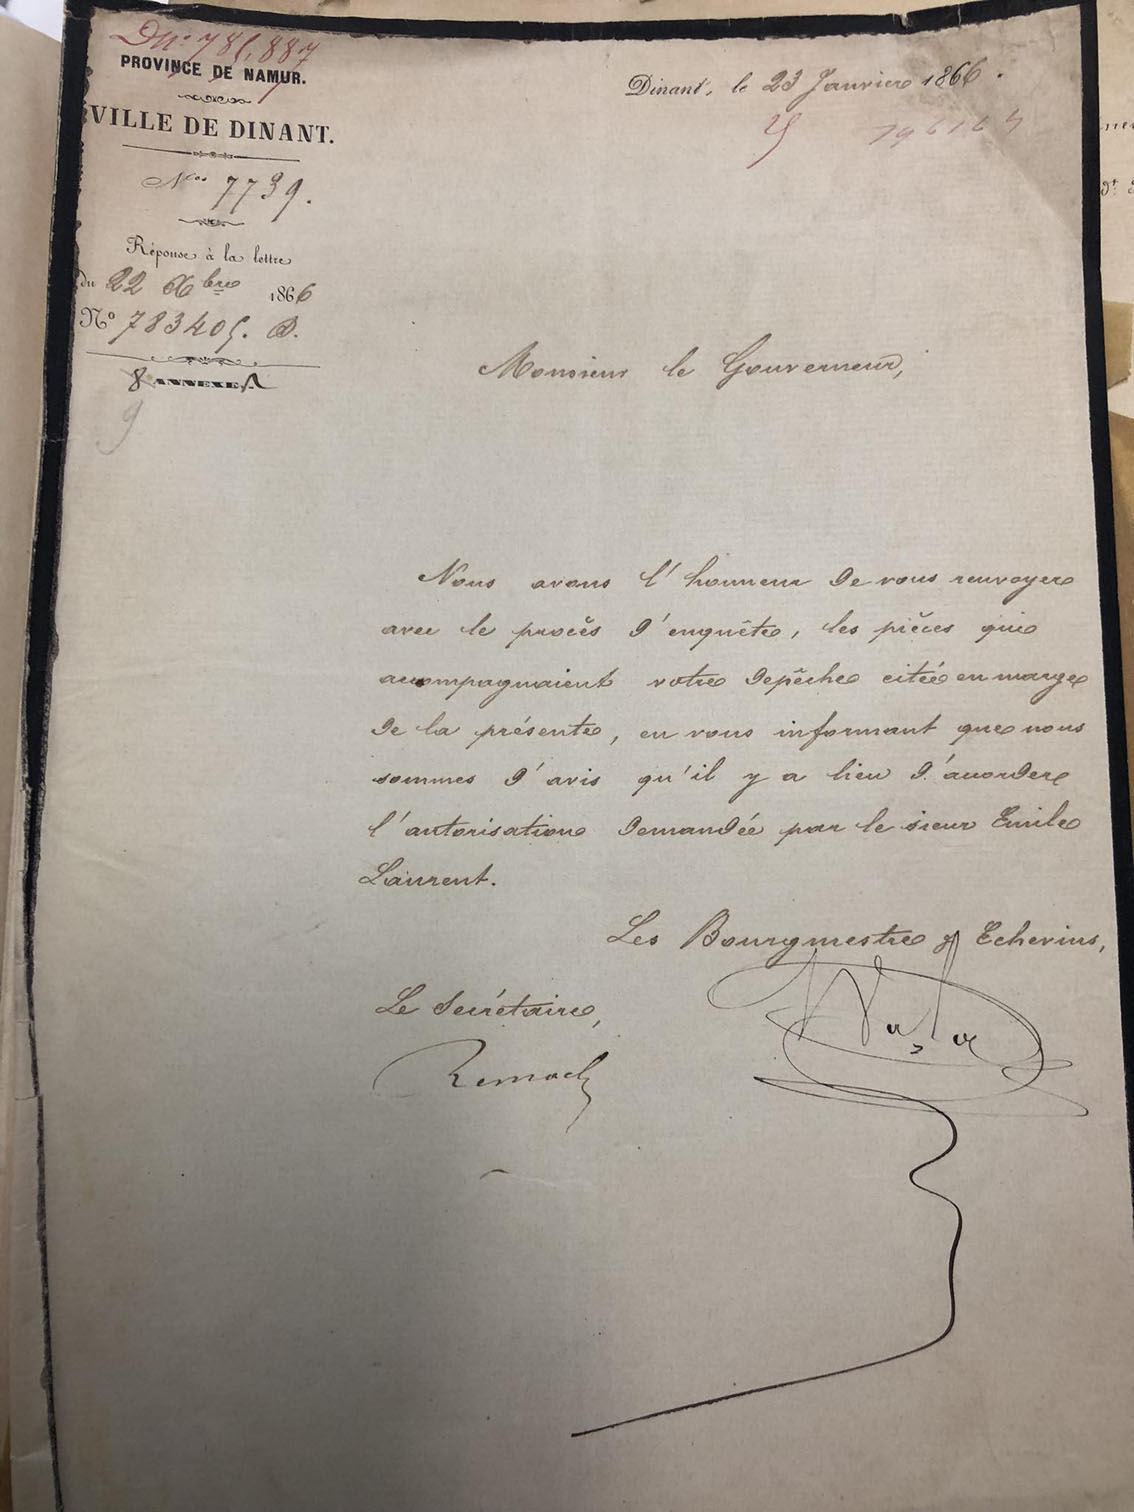 Dn° 781,887
PROVINCE DE NAMUR.
VILLE DE DINANT.
Nos 7739.
Réponse à la lettre
du 22 Xbre 1866
N° 783405. B.
8 ANNEXES
9
Dinant, le 23 Janvier 1866.
Monsieur le Gouverneur,
Nous avons l'honneur de vous renvoyer
avec le procès d'enquête, les pièces qui
accompagnaient votre dépêche citée en marge
de la présente, en vous informant que nous
sommes d'avis qu'il y a lieu d'accorder
l'autorisation demandée par le sieur Emile
Laurent.
Les Bourgmestre & Echevins,
Le Secrétaire,
Remacle